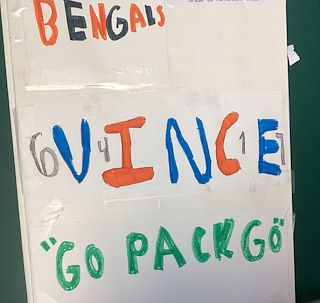 BENGALS
6 V 4 I N C 1 E 7
"GO PACK GO"